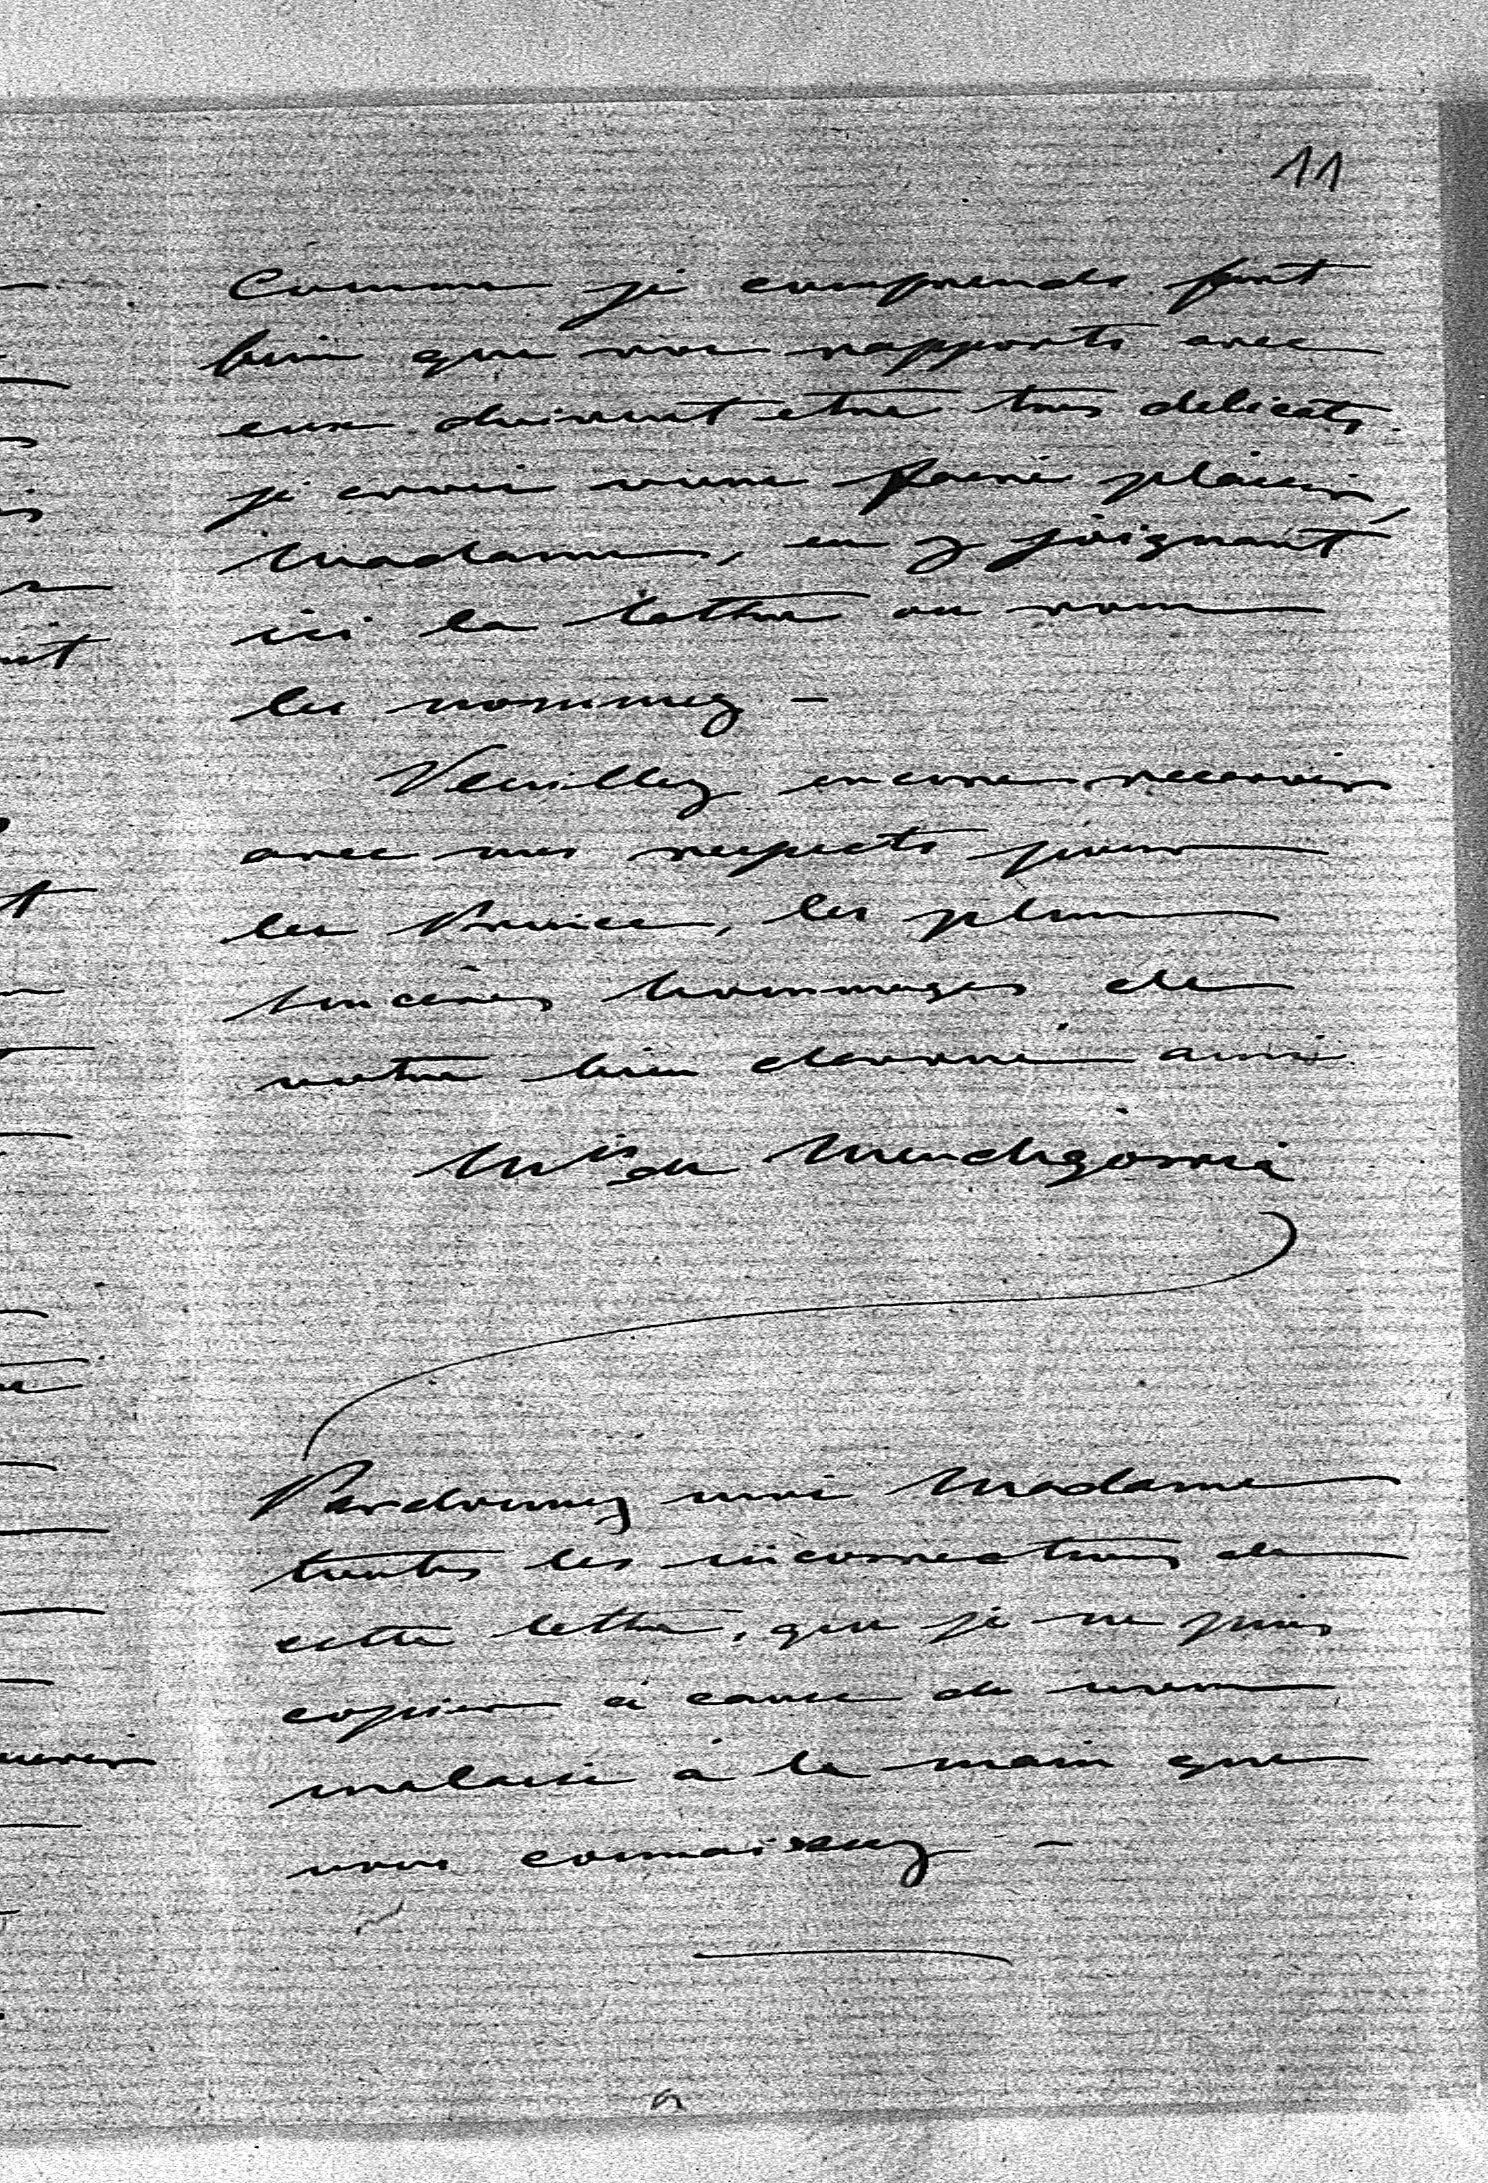 11
Comme je comprends fort
bien que vos rapports avec
eux doivent etre tres delicats,
je crois vous faire plaisir
Madame, en y joignant
ici la lettre ou vous
les nommez -
Veuillez encore recevoir
avec mes respects pour
le Prince, les plus
sincères hommages de
votre bien devoué ami
Mis de Mendigorria
Pardonnez moi Madame
toutes les incorrections de
cette lettre, que je ne puis
copier à cause de mon
malaise à la main que
vous connaissez -